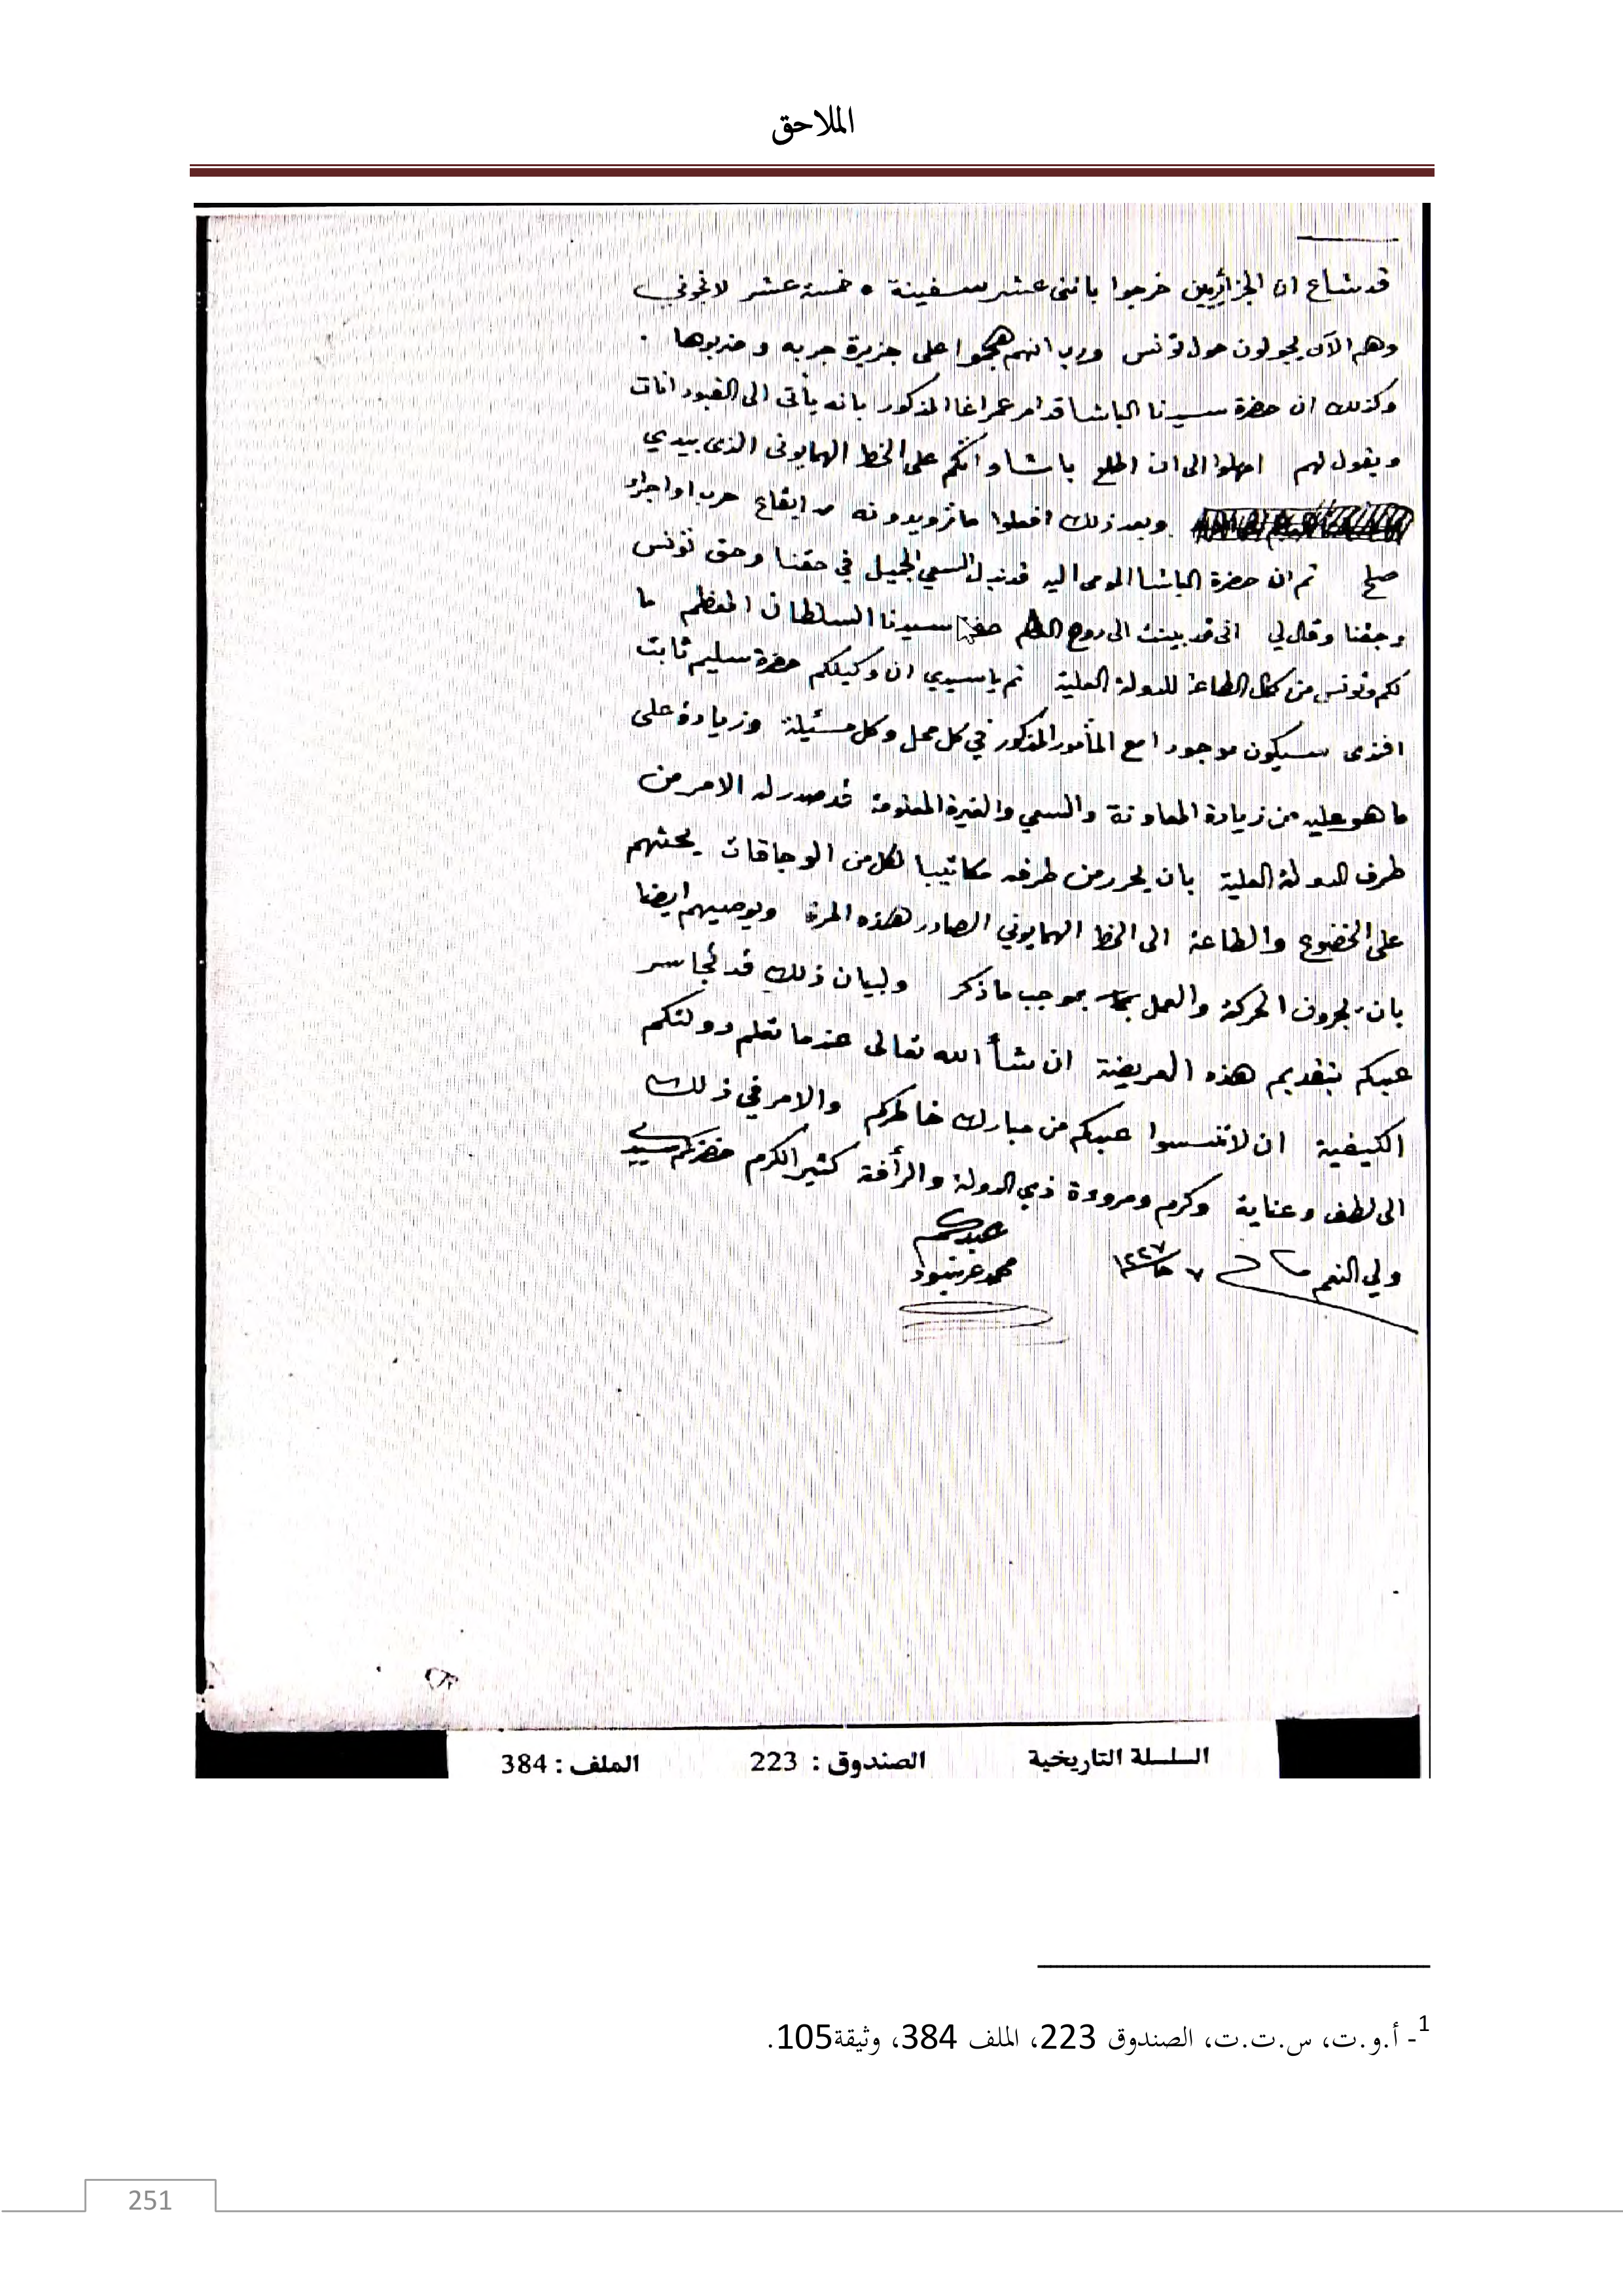 الملاحق
قد شاع ان الجزائريين خرجوا باثنى عشر سفينة • خمسة عشر لانجوني
وهم الآن يجولون حول تونس ورب انهم هجموا على جزيرة جربه وضربوها .
وكذلك ان حضرة سيدنا الباشا قد امر عمر اغا المذكور بانه يأتى الى القبودانات
ويقول لهم امهلوا الى ان اطلع باشاواتكم على الخط الهمايونى الذى بيدي
وبعد ذلك افعلوا ما تريدونه من ايقاع حرب او اجراء
صلح ثم ان حضرة الباشا المومى اليه قد بذل السعي الجميل في حقنا وحق تونس
وحقنا وقال لي انى قد بينت الى سيدنا السلطان المعظم ما
لكم وتونس من كمال الطاعة للدولة العلية ثم يا سيدي ان وكيلكم حضرة سليم ثابت
افندى سيكون موجودا مع المأمور المذكور في كل محل وكل مسئيلة وزيادة على
ما هو عليه من زيادة المعاونة والسعي والغيرة المعلومة قد صدر له الامر من
طرف الدولة العلية بان يحرر من طرفه مكاتيبا لكل من الوجاقات يحثهم
على الخضوع والطاعة الى الخط الهمايوني الصادر هذه المرة ويوصيهم ايضا
بان يجروف الحركة والعمل بموجب ما ذكر ولبيان ذلك قد تجاسر
عبدكم بتقديم هذه العريضة ان شأ الله تعالى عندما تعلم دولتكم
الكيفية ان لا تنسوا عبدكم من مبارك خاطركم والامر في ذلك
الى لطف وعناية وكرم ومرودة ذي الدولة والرأفة كثير الكرم حضرتكم سيدي
ولي النعم ٧ ١٢٢٧
عبدكم
محمد
السلسلة التاريخية الصندوق : 223 الملف : 384
1- أ.و.ت، س.ت.ت، الصندوق 223، الملف 384، وثيقة105.
251